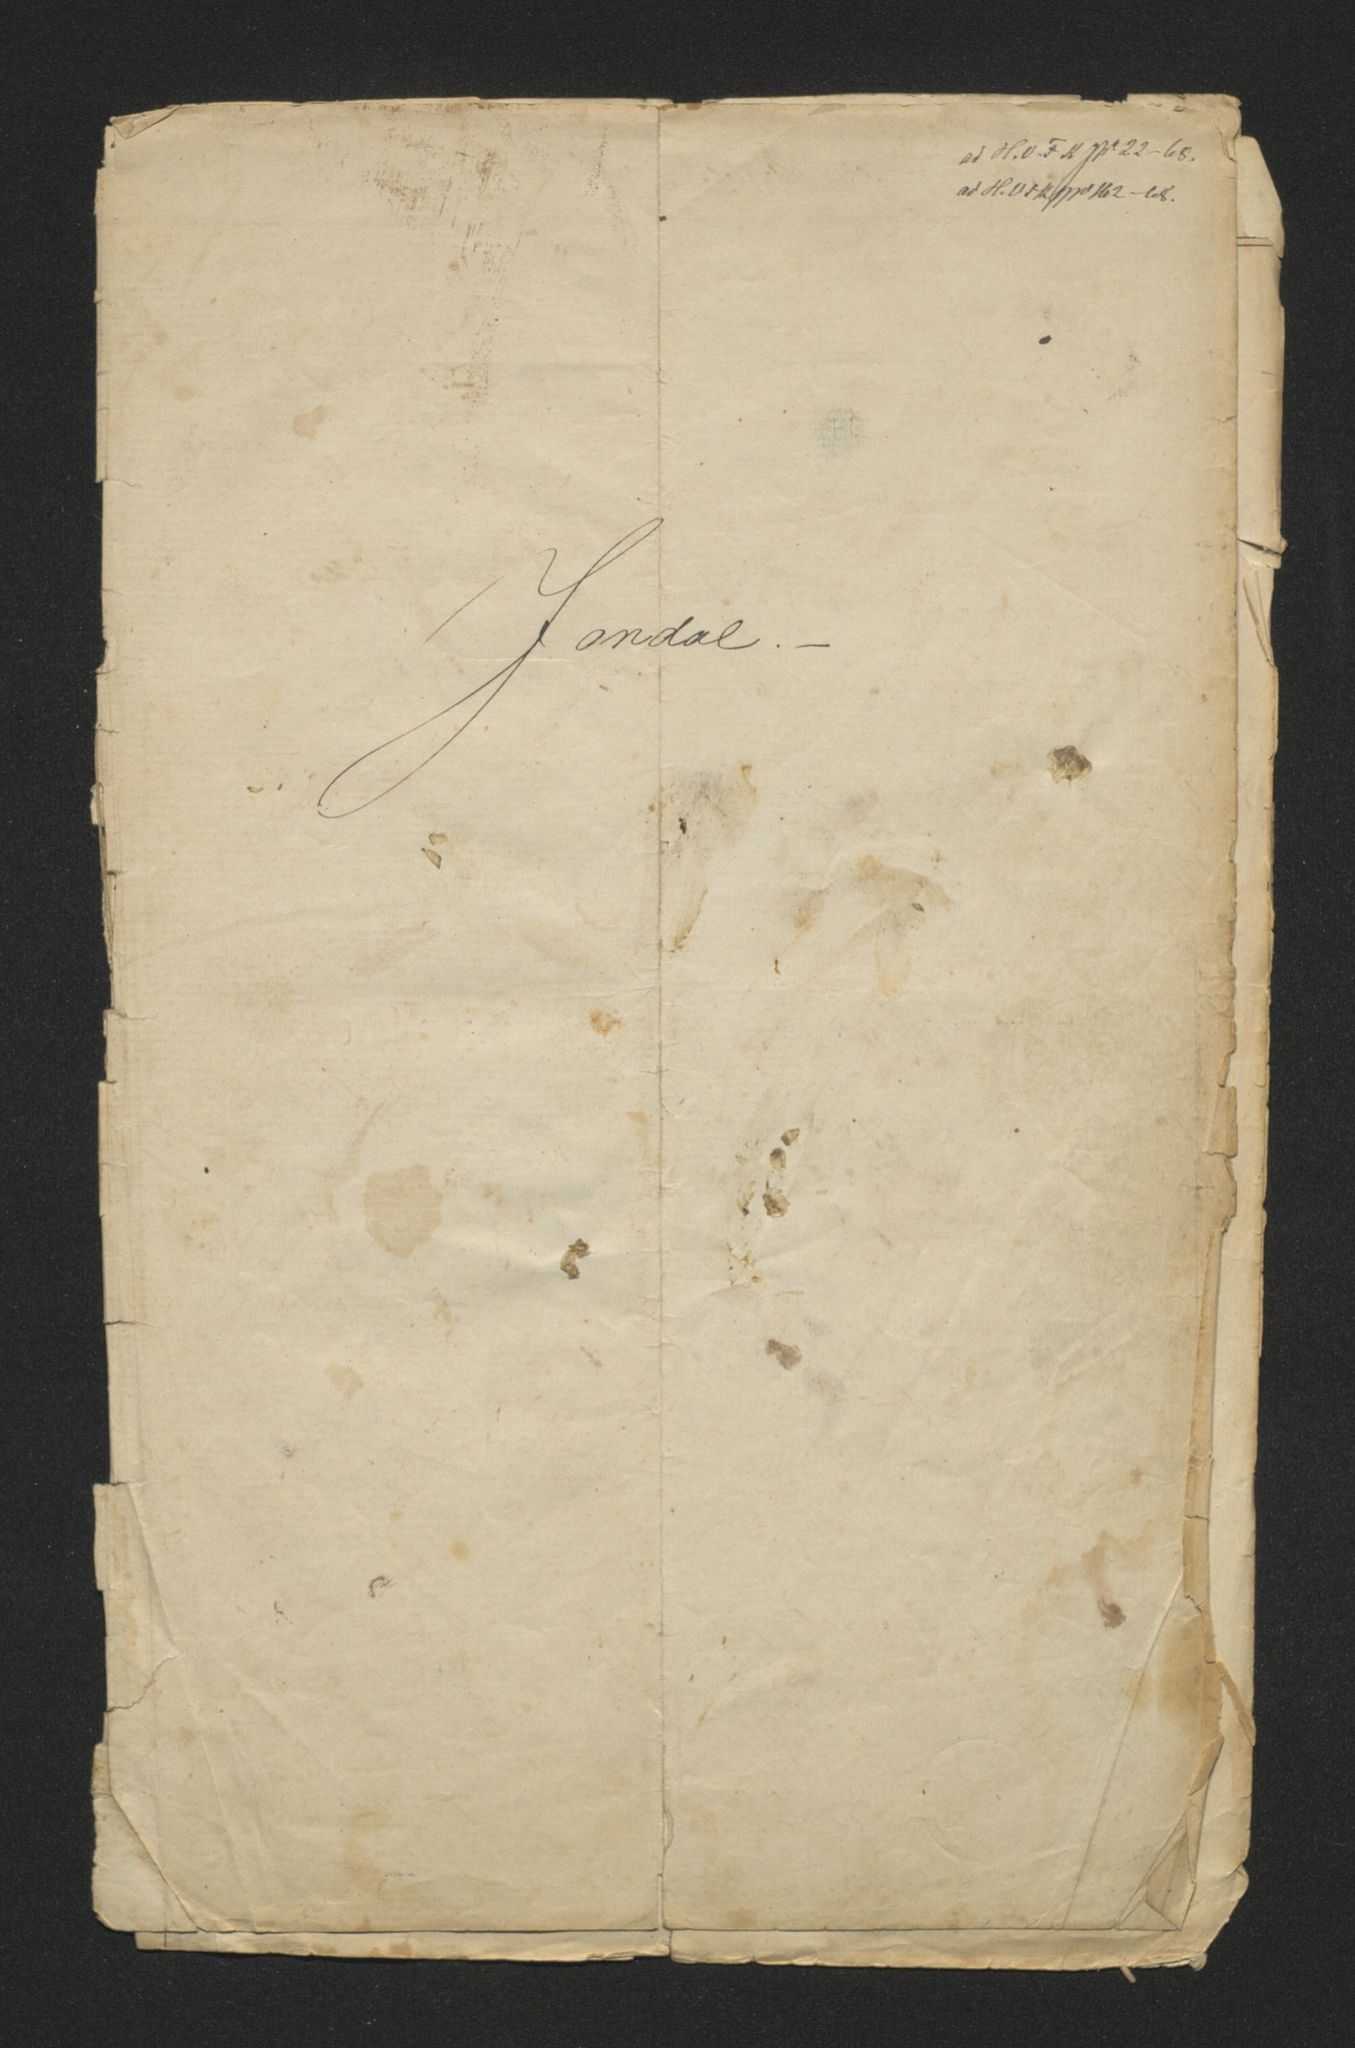 ad H.V.F.K. No 22-68.
ad H.V.F.K. No 162-68.
Jondal.-